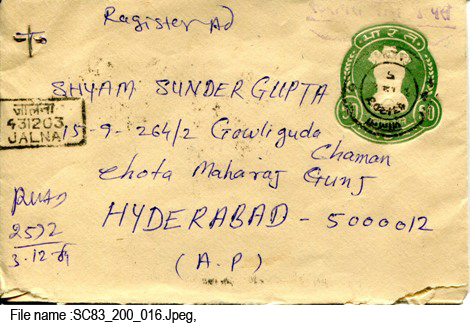 Ragister Ad
भारत
SHYAM SUNDER GUPTA
जालना
431203
JALNA
15-9-264/2 Gowliguda
Chaman
Chota Maharaj Gunj
HYDERABAD - 5000012
(A.P)
2572
3.12.84
File name :SC83_200_016.Jpeg,